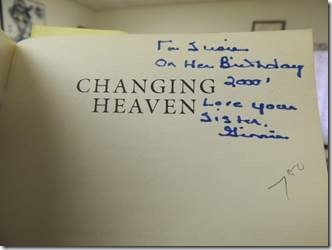 For Susie
On Her Birthday
2000'
CHANGING
HEAVEN
Love your
Sister,
Ginnie
7 50